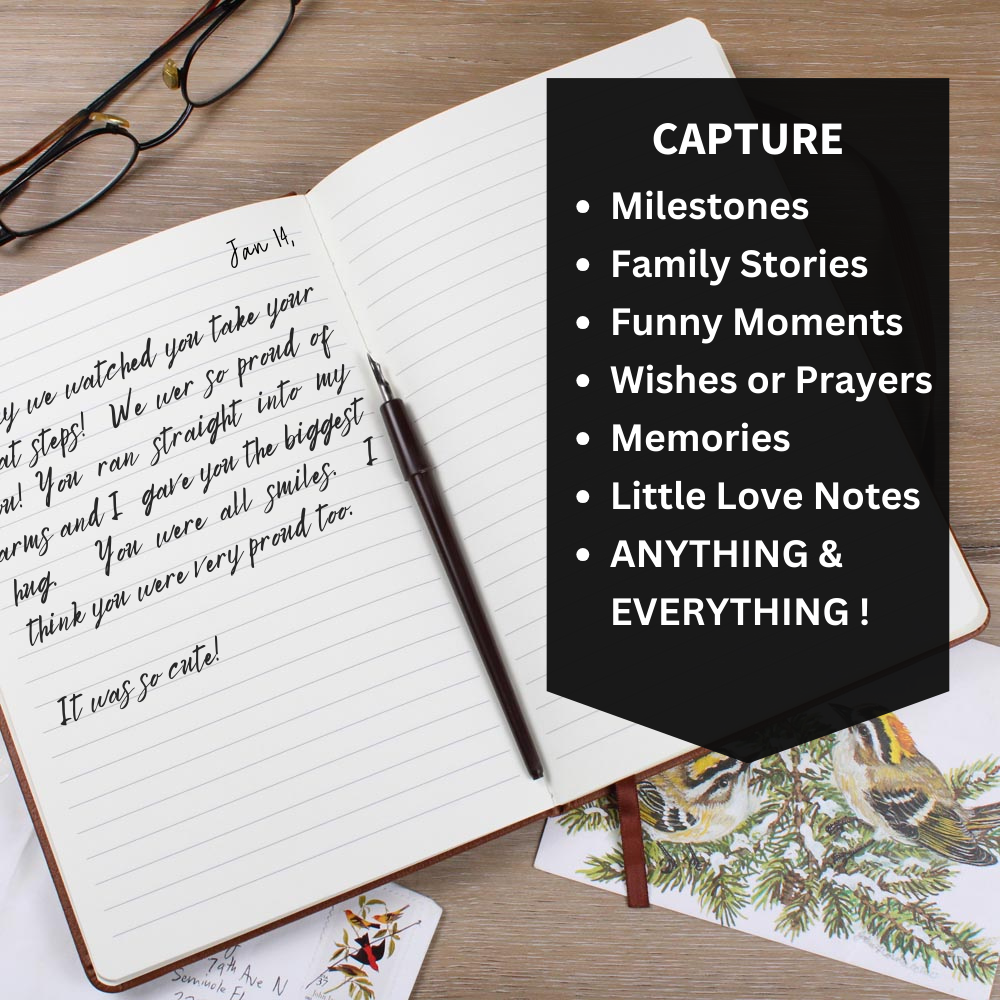 Jan 14,
we watched you take your
steps! We wer so proud of
You ran straight into my
arms and I gave you the biggest
hug. You were all smiles. I
think you were very proud too.
It was so cute!
CAPTURE
• Milestones
• Family Stories
• Funny Moments
• Wishes or Prayers
• Memories
• Little Love Notes
• ANYTHING &
EVERYTHING !
79th Ave N
Seminole Fl
37